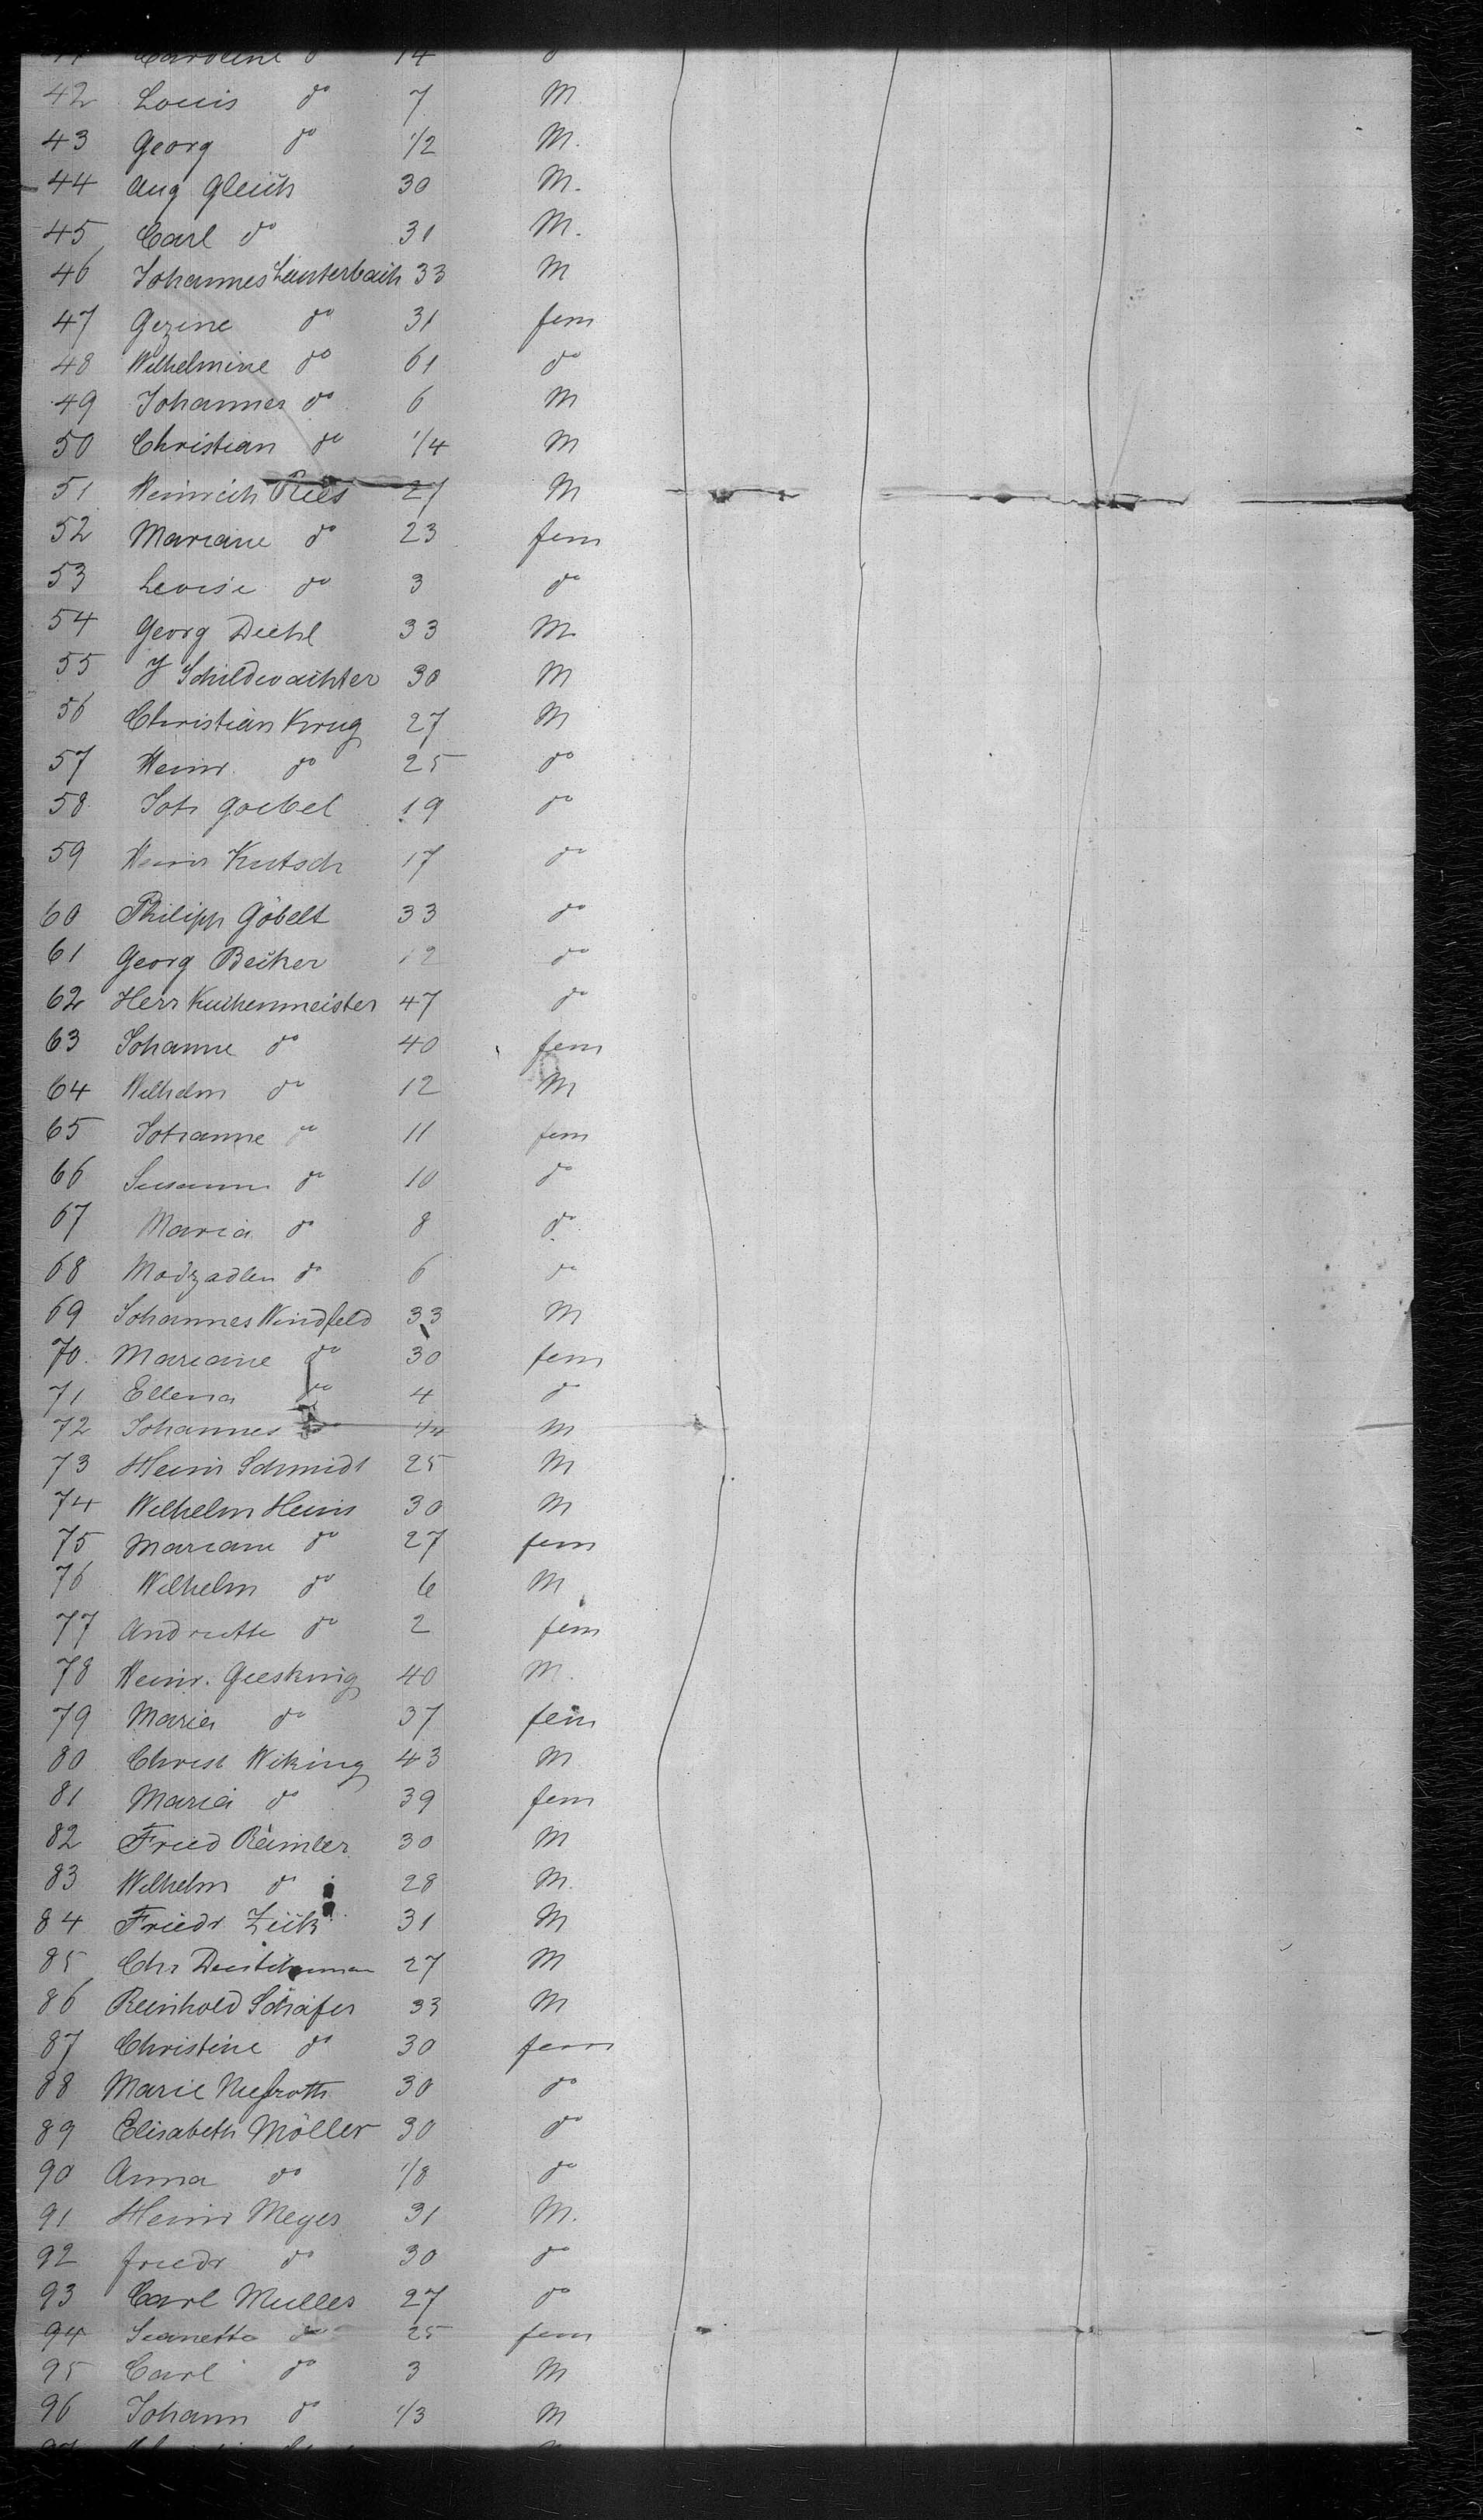 41 Caroline do 14 do
42 Louis do 7 M.
43 Georg do 1/2 M.
44 Aug Gleich 30 M.
45 Carl do 31 M.
46 Johannes Lauterbach 33 M
47 Gezine do 31 fem
48 Wilhelmine do 61 do
49 Johannes do 6 M
50 Christian do 1/4 M
51 Heinrich Ries 27 M
52 Mariane do 23 fem
53 Louise do 3 do
54 Georg Diehl 33 M
55 J Schildwachter 30 M
56 Christian Krug 27 M
57 Heinr. do 25 do
58 Joh Goebel 19 do
59 Heinr Kutsch 17 do
60 Philipp Göbelt 33 do
61 Georg Becker 12 do
62 Herr Kuchenmeister 47 do
63 Johanne do 40 fem
64 Wilhelm do 12 M
65 Johanne do 11 fem
66 Susanne do 10 do
67 Maria do 8 do
68 do 6 do
69 Johannes Windfeld 33 M
70. Mariane do 30 fem
71 Ellena do 4 do
72 Johannes do 1/4 M
73 Heinr Schmidt 25 M
74 Wilhelm Heins 30 M
75 Mariane do 27 fem
76 Wilhelm do 6 M
77 do 2 fem
78 Heinr. Giesking 40 M.
79 Maria do 37 fem
80 Christ Wiking 43 M
81 Maria do 39 fem
82 Fried Reimler 30 M
83 Wilhelm do 28 M.
84 Friedr Zick 31 M
85 Chr 27 M
86 Reinhold Schäfer 33 M
87 Christine do 30 fem
88 Marie 30 do
89 Elisabeth Möller 30 do
90 Anna do 1/8 do
91 Heinr Meyer 31 M.
92 Friedr do 30 do
93 Carl Muller 27 do
94 Jeanette do 25 fem
95 Carl do 3 M
96 Johann do 1/3 M
97